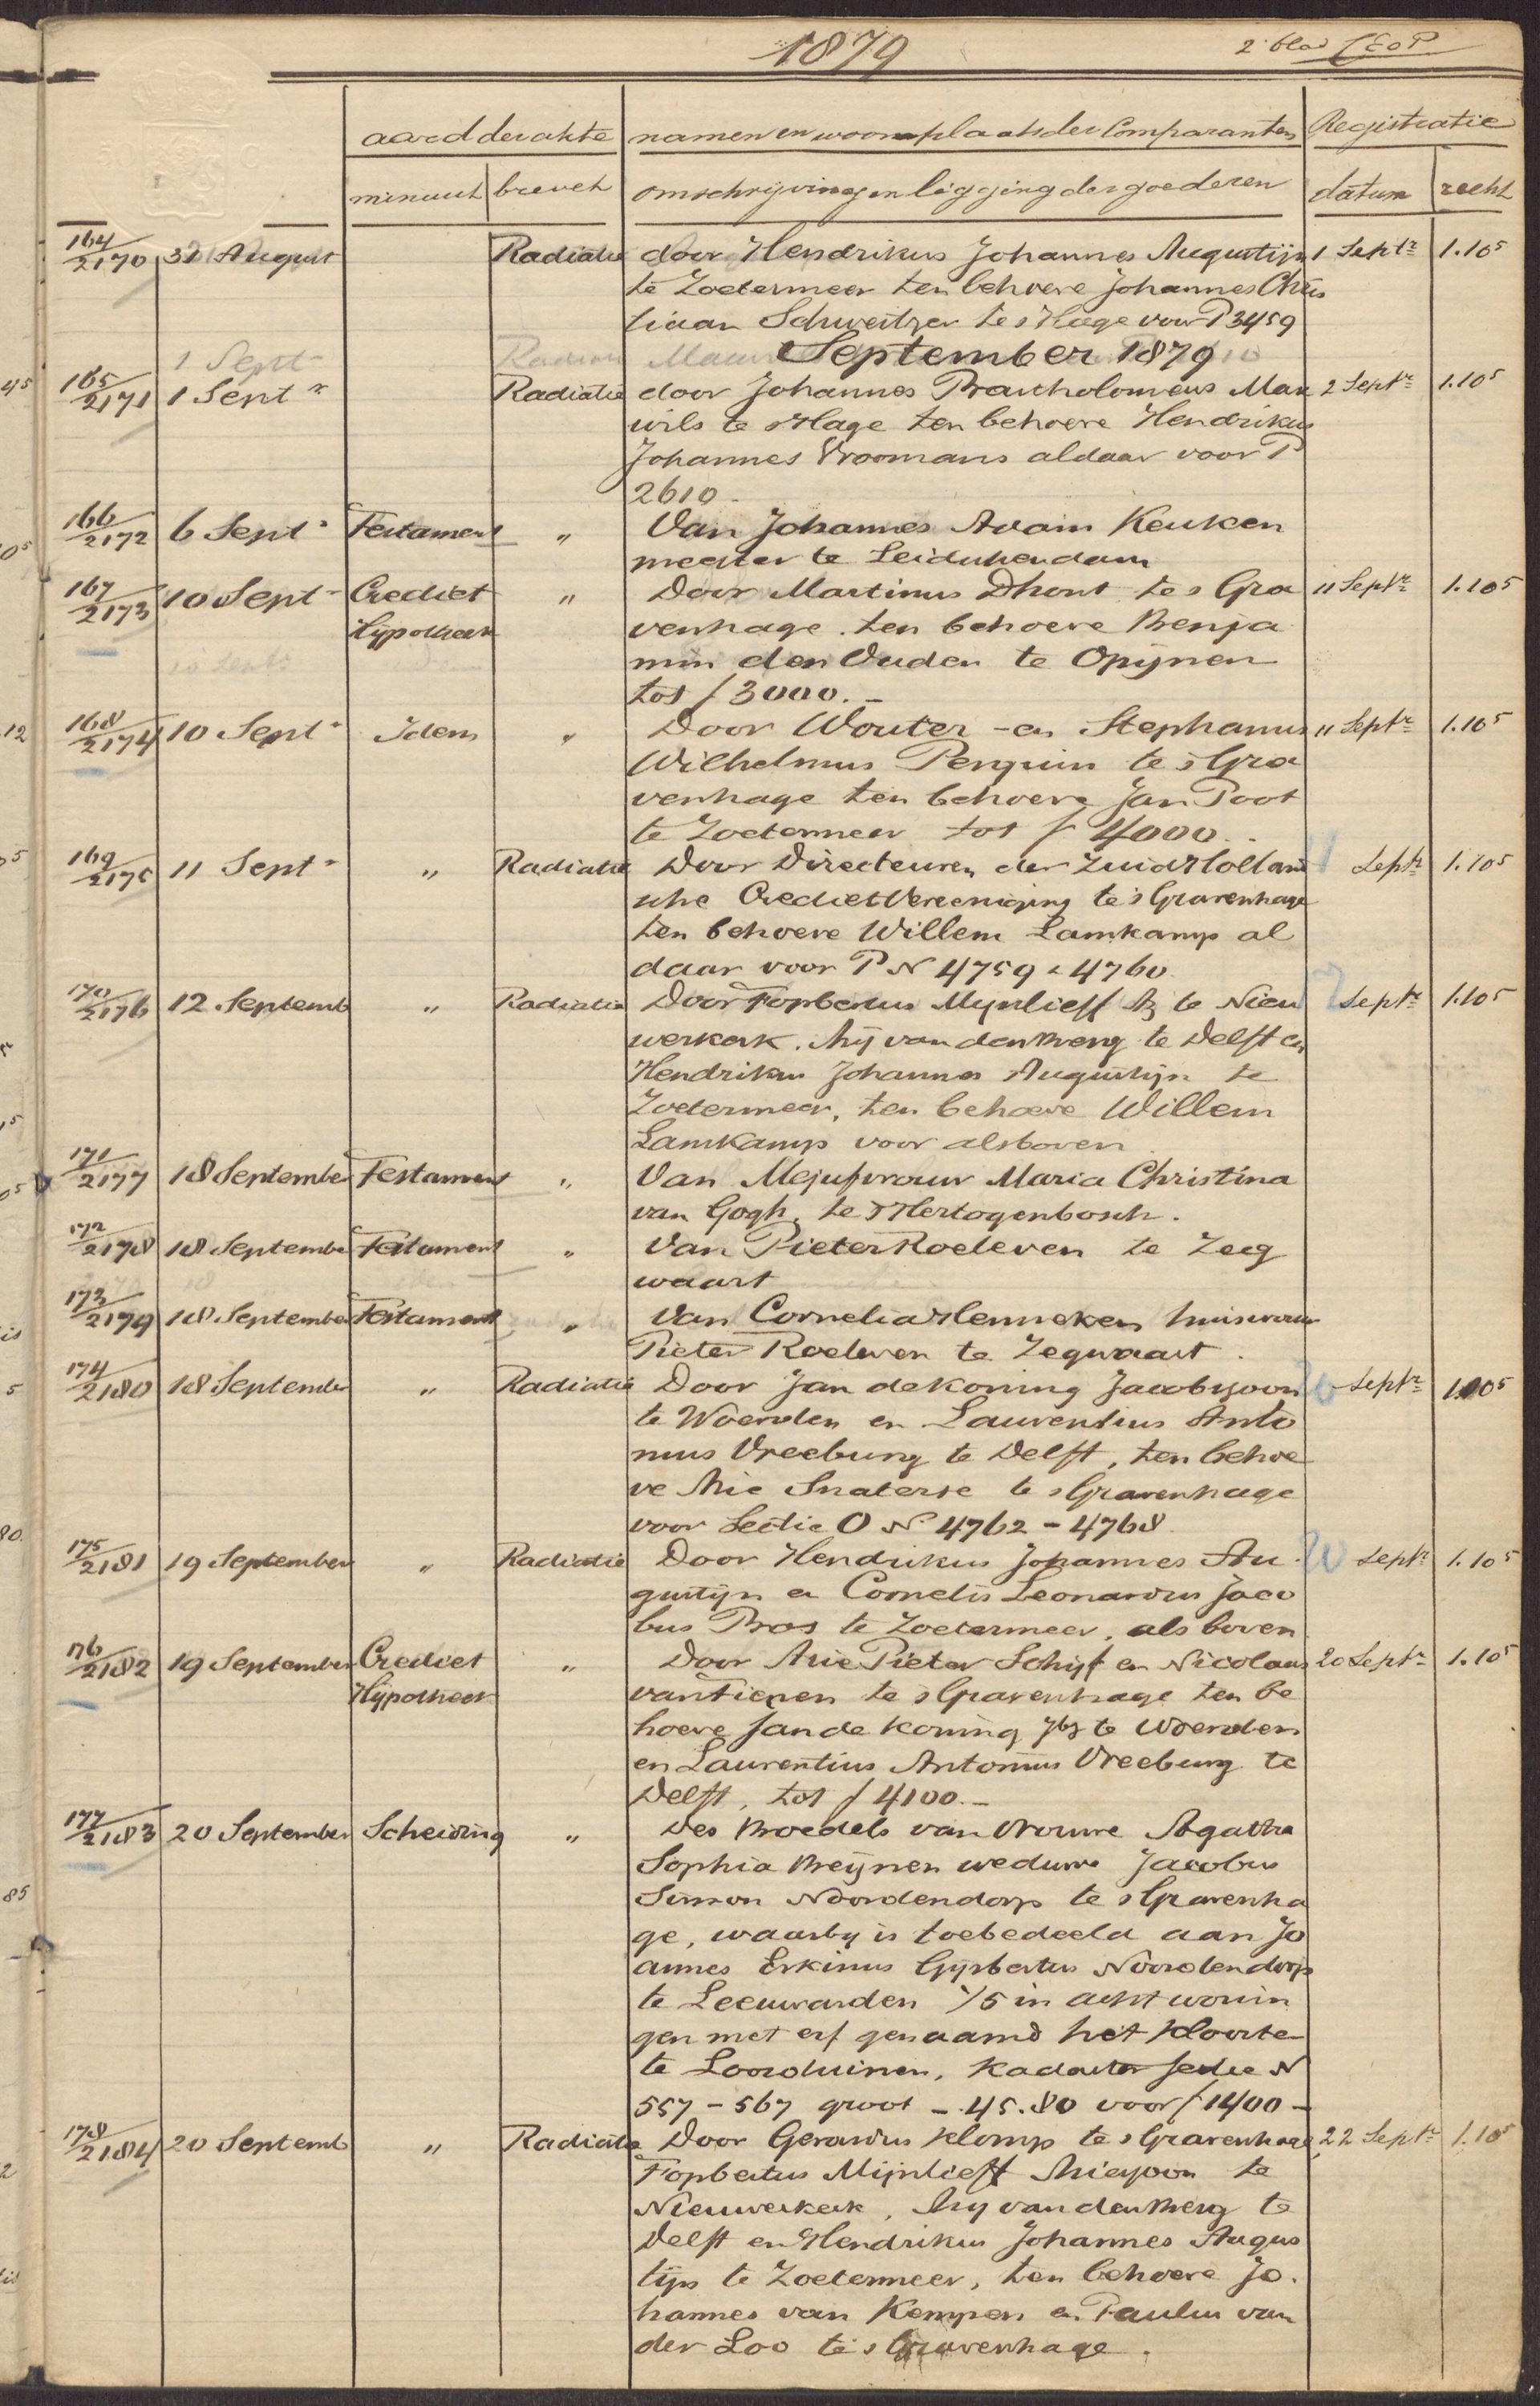 1879
2e blad
aard der akte namen en woonplaats der Comparanten Registratie
minuut brevet omschrijving en ligging der goederen datum recht
164/2170 31 August Radiatie door Hendrikus Johannes Augustijn 1 Septr 1.10⁵
te Zoetermeer ten behoeve Johannes Chris
tiaan Schweitzer te s Hage voor P 3459
September 1879
1 Sept
165/2171 1 Septr Radiatie door Johannes Bartholomeus Mau 2 Septr 1.10⁵
wils te sHage ten behoeve Hendrikus
Johannes Vroomans aldaar voor P
2610.
166/2172 6 Septr Testament „ Van Johannes Adam Keuken
meester te Leidschendam
167/2173 10 Sept Crediet „ Door Martinus Dhont te s Gra 11 Septr 1.10⁵
Hypotheek venhage. ten behoeve Benja
min den Ouden te Opijnen
tot ƒ 3000.-
168/2174 10 Septr Idem „ Door Wouter en Stephanus 11 Septr 1.10⁵
Wilhelmus Penquin te s Gra
venhage ten behoeve Jan Poot
te Zoetermeer tot ƒ 4000.-
169/2175 11 Septr „ Radiatie Door Directeuren der Zuid Holland 11 Septr 1.10⁵
sche Crediet Vereeniging te s Gravenhage
ten behoeve Willem Lamkamp al
daar voor P N 4759 a 4760
170/2176 12 Septemb „ Radiatie Door Fopbertus Mijnlieff Az te Nieu Septr 1.10⁵
werkerk. Arij van den Berg te Delft en
Hendrikus Johannes Augustijn te
Zoetermeer, ten behoeve Willem
Lamkamp voor alsboven
171/2177 18 September Testament „ Van Mejufvrouw Maria Christina
van Gogh, te sHertogenbosch.
172/2178 18 September Testament „ Van Pieter Roeleven te Zeg
waart
173/2179 18 September Testament „ Van Cornelia Henneken huisvrouw
Pieter Roeleven te Zegwaart.
174/2180 18 September „ Radiatie Door Jan de Koning Jacobszoon 20 Septr 1.10⁵
te Woerden en Laurentius Anto
nius Vreeburg te Delft, ten behoe
ve Arie Snaterse te sGravenhage
voor Sectie O N 4762 - 4768.
175/2181 19 September „ Radiatie Door Hendrikus Johannes Au 20 Septr 1.10⁵
gustijn en Cornelis Leonardus Jaco
bus Bos te Zoetermeer, als boven
176/2182 19 September Crediet „ Door Arie Pieter Schijf en Nicolaas 20 Septr 1.10⁵
Hypotheek van Tienen te sGravenhage ten be
hoeve Jan de Koning Jbz te Woerden
en Laurentius Antonius Vreeburg te
Delft, tot ƒ 4100.-
177/2183 20 September Scheiding „ Des Boedels van Vrouwe Agatha
Sophia Breijnen weduwe Jacobus
Simon Noordendorp te sGravenha
ge, waarbij is toebedeeld aan Jo
annes Erkinus Gijsbertus Noordendorp
te Leeuwarden 1/5 in acht wonin
gen met erf genaamd het Klooster
te Loosduinen, Kadaster sectie N
557 - 567 groot -.45.80 voor ƒ 1400-
178/2184 20 Septemb „ Radiatie Door Gerardus Klomp te sGravenhage 22 Septr 1.10⁵
Fopbertus Mijnlieff Ariezoon te
Nieuwerkerk, Arij van den Berg te
Delft en Hendrikus Johannes Augus
tijn te Zoetermeer, ten behoeve Jo.
hannes van Kempen en Paulus van
der Loo te sGravenhage.